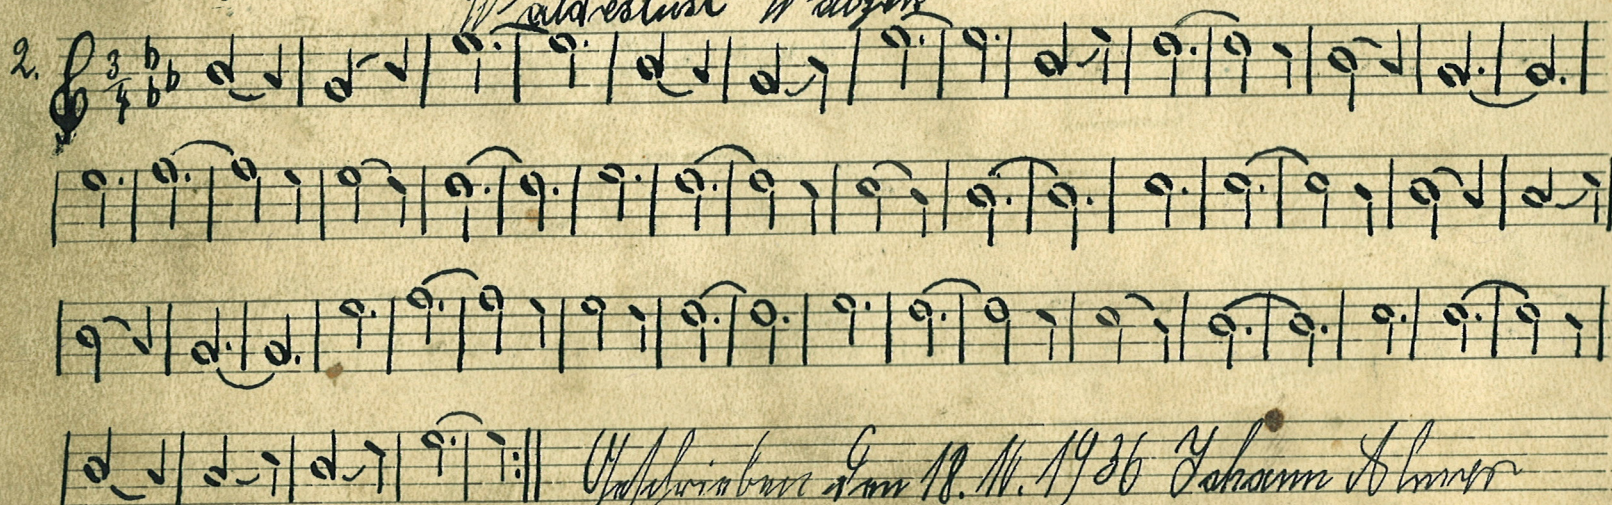 Waldeslust Walzer
2.
3/4
Geschrieben den 18. 10. 1936 Johann